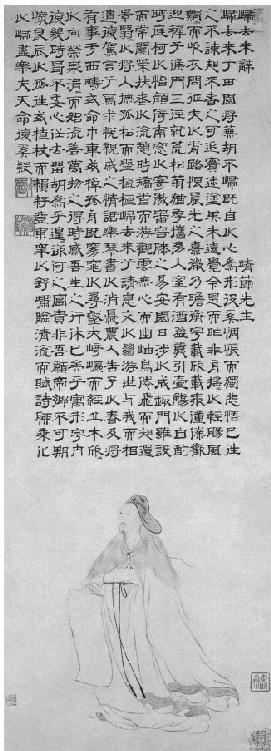 歸去來辭 靖節先生
歸去來兮田園將蕪胡不歸既自以心為形役奚惆悵而獨悲悟已往
之不諫知來者之可追實迷塗其未遠覺今是而昨非舟搖搖以輕颺風
飄飄而吹衣問征夫以前路恨晨光之熹微乃瞻衡宇載欣載奔僮僕歡
迎稚子候門三徑就荒松菊猶存攜幼入室有酒盈樽引壺觴以自酌
眄庭柯以怡顏倚南窗以寄傲審容膝之易安園日涉以成趣門雖設
而常關策扶老以流憩時矯首而遐觀雲無心而出岫鳥倦飛而知還
景翳翳以將入撫孤松而盤桓歸去來兮請息交以絕遊世與我而相
遺復駕言兮焉求悅親戚之情話樂琴書以消憂農人告余以春及將
有事于西疇或命巾車或棹孤舟既窈窕以尋壑亦崎嶇而經丘木欣欣
以向榮泉涓涓而始流善萬物之得時感吾生之行休已矣乎寓形宇內
復幾時曷不委心任去留胡為乎遑遑欲何之富貴非吾願帝鄉不可期
懷良辰以孤往或植杖而耘耔登東皋以舒嘯臨清流而賦詩聊乘化
以歸盡樂夫天命復奚疑